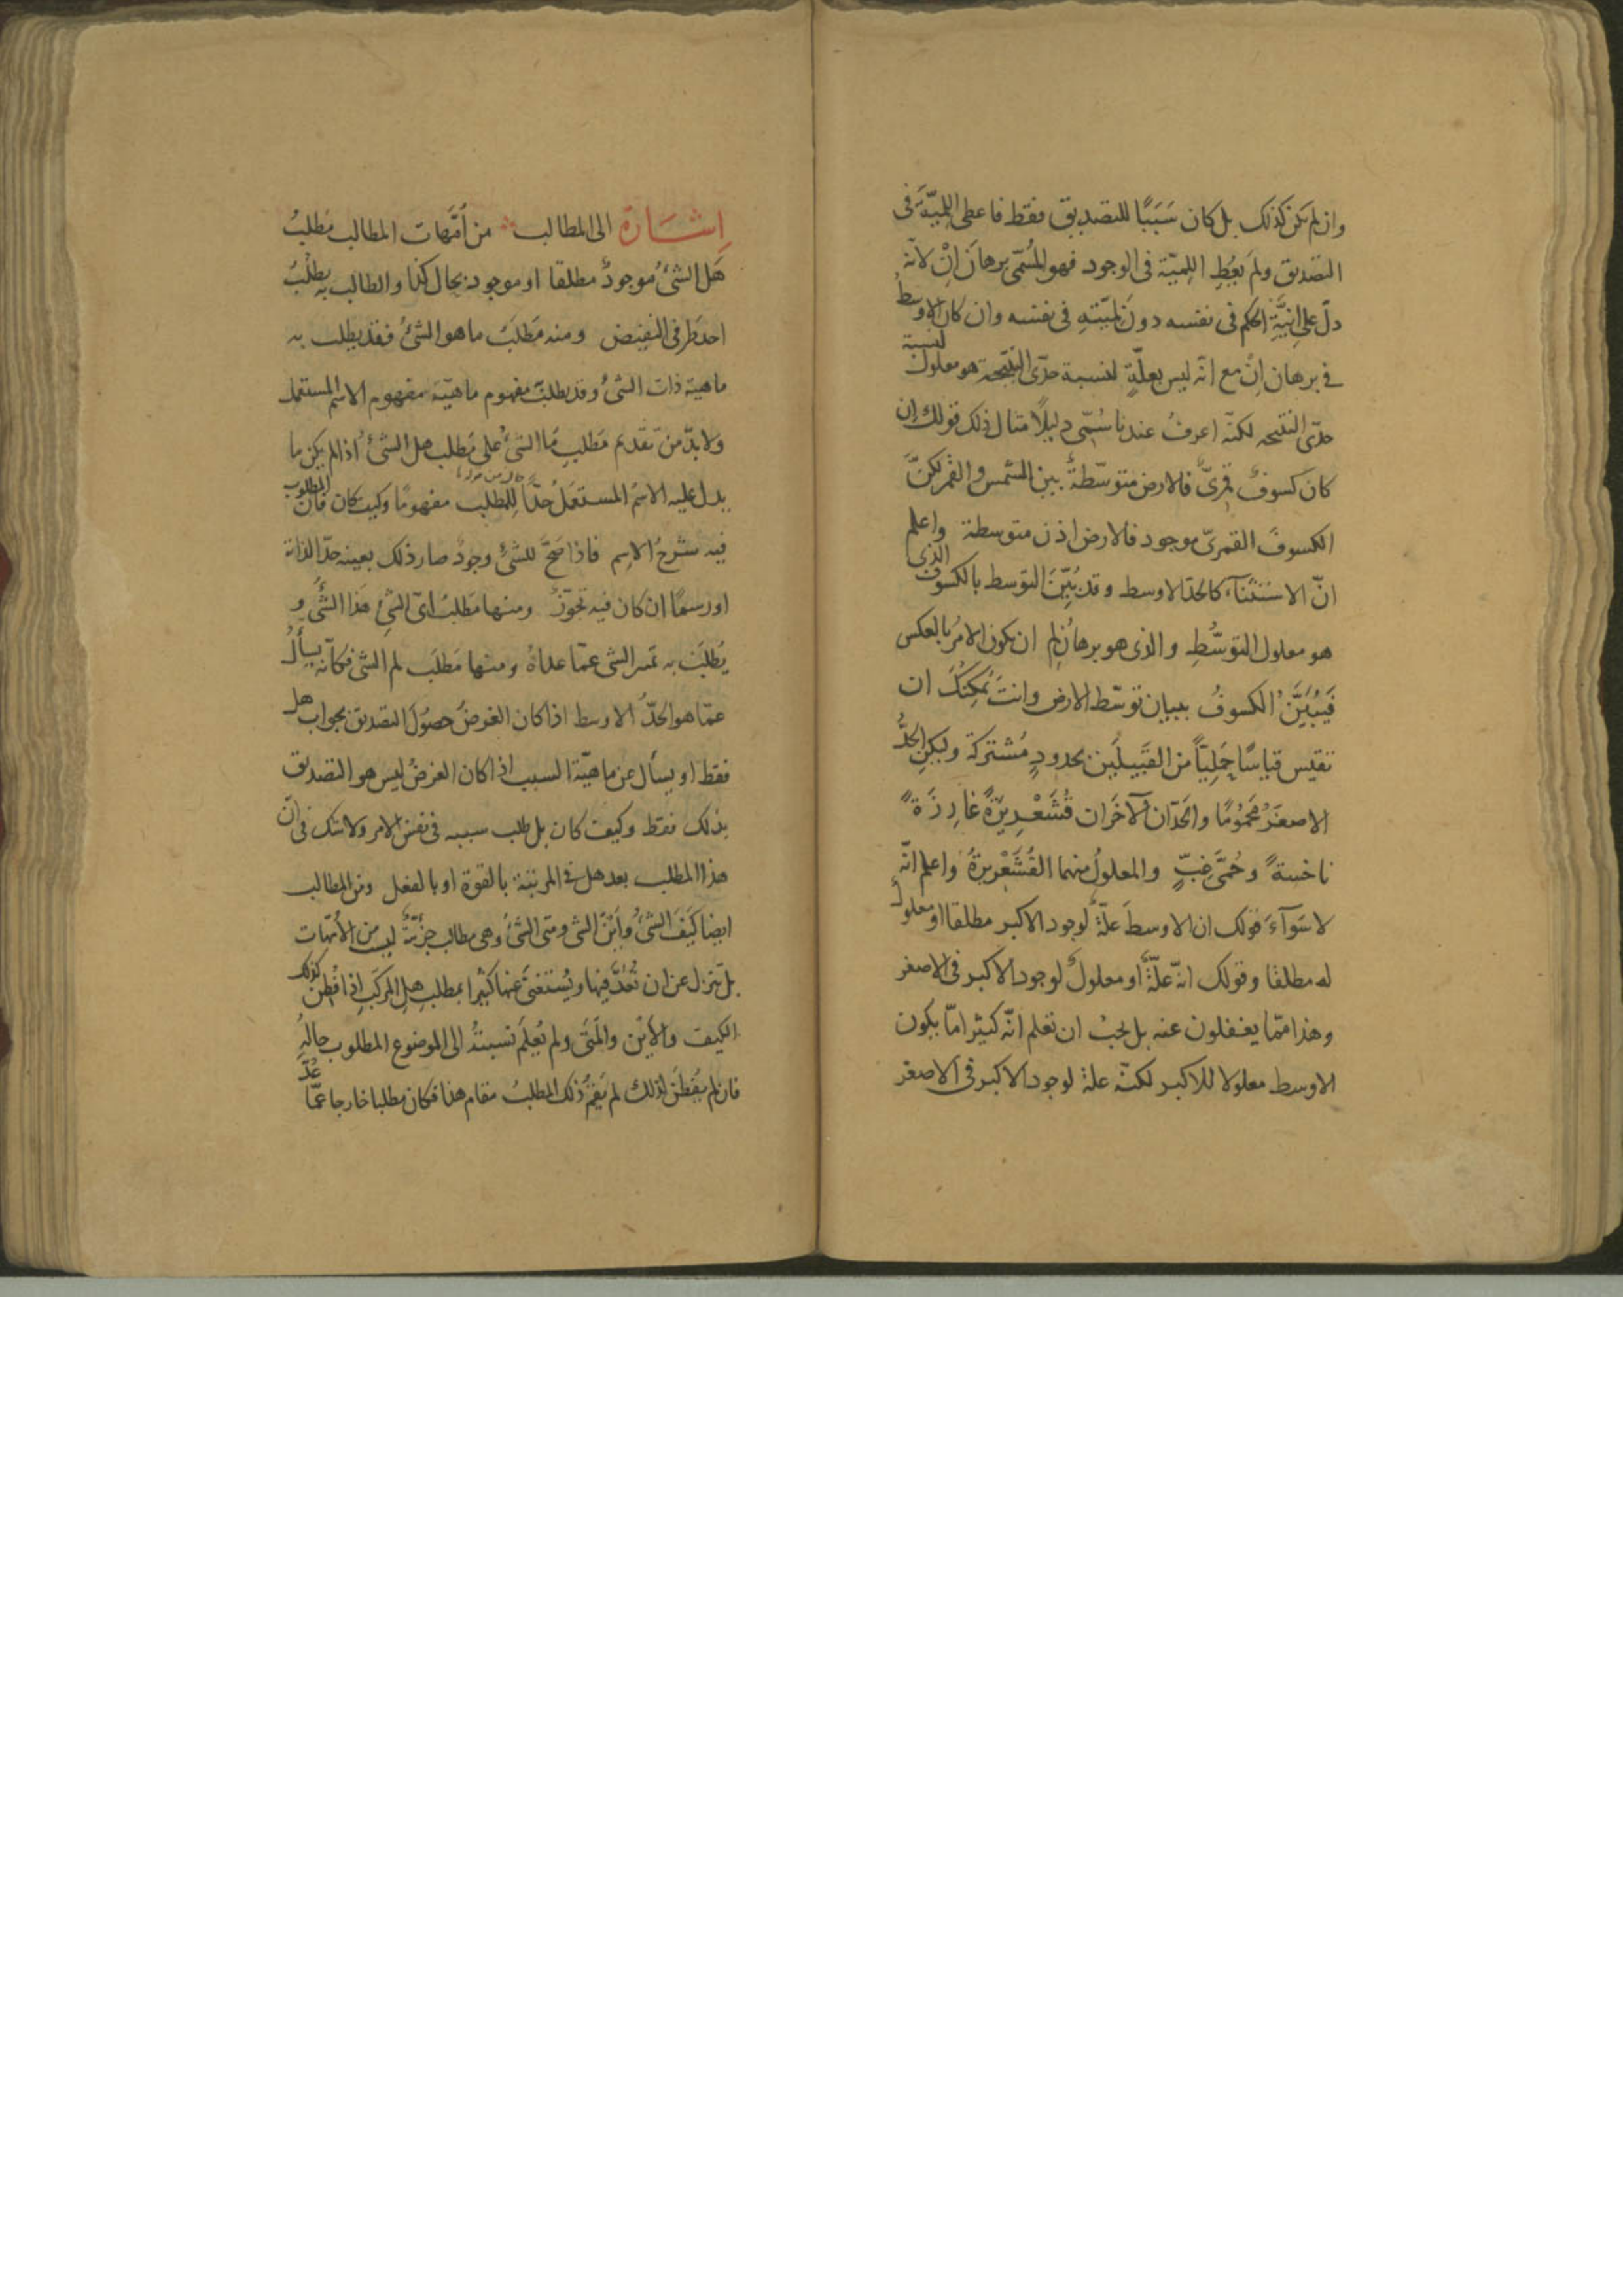 وان لم يكن كذلك بل كان سَبَبًا للتصديق فقط فاعطى اللِميّةَ فى
التصديق ولم يُعْطِ اللِميّة فى الوجود فهو المُسَمّى برهانَ اِنّ لانّه
دلّ على اِنِيَّةِ الحكم فى نفسه دونَ لِمّيتهِ فى نفسه وان كان الاوسطُ
فى برهان اِنّ مع انّه ليس بعلّةٍ لنسبة حدّى النتيجة هو معلولٌ لنسبة
حدّى النتيجه لكنّه اعرفُ عندنا سُمّى دليلًا مثال ذلك قولك ان
كان كسوفٌ قمرىٌّ فالارض متوسّطةٌ بين الشمس والقمر لكنّ
الكسوفَ القمرىّ موجود فالارض اذن متوسطة واعلم
انّ الاستثنآء كالحدّ الاوسط وقد بُيِّنَ التوسط بالكسوف الذى
هو معلول التوسُّطِ والذى هو برهانُ لِم ان يكون الامرُ بالعكس
فَيُبَيَّنُ الكسوفُ ببيان توسّط الارض وانتَ يُمكِنُكَ ان
تقيس قياسًا حَمليّاً من القَبيلَين بحدودٍ مُشتركة وليكن الحدُّ
الاصغَرُ مَحْمُومًا والحَدّان الآخَران قُشَعْرِيرَةً غارِزَةً
ناخسةً وحُمَّى غِبٍّ والمعلولُ منهما القُشَعْرِيرةُ واعلم انّه
لا سَوآءَ قولك ان الاوسطَ علّةٌ لوجود الاكبر مطلقا او معلولٌ
له مطلقا وقولك انّه علّةٌ او معلولٌ لوجود الاكبر فى الاصغر
وهذا ممّا يغفلون عنه بل يجبُ ان تعلم انّه كثيرًا مّا يكون
الاوسط معلولا للاكبر لكنّه علة لوجود الاكبر فى الاصغر
اِشَارَة الى المطالب من اُمَّهات المطالب مَطلبُ
هَل الشئُ موجودٌ مطلقا او موجود بحال كذا والطالب به يطلُبُ
احد طرفى النقيض ومنه مَطلَبُ ما هو الشئُ فقد يطلب به
ماهية ذات الشئُ وقد يطلبُ مفهوم ماهيّة مفهوم الاسم المستعمل
ولا بدّ من تقديم مَطلبِ مَا الشئُ على مَطلب هل الشئُ اذا لم يكن ما
يدل عليه الاسمُ المستعمَلُ حدًّا لِلمطلب مفهومًا وكيف كان فان المطلوب
فيه شرحُ الاسم فاذا صَحَّ للشئُ وجودٌ صار ذلك بعينه حدّا لذاته
او رسمًا ان كان فيه تجوّزٌ ومنها مَطلبُ اىّ الشئِ هَذا الشئُ و
يُطلَبُ به تميز الشئ عمّا عداهُ ومنها مَطلَب لم الشئ فكانّه يسألُ
عمّا هو الحَدُّ الاوسط اذا كان الغرضُ حصُولَ التصديق بجواب هل
فقط او يسأل عن ماهيّة السبب اذا كان الغرضُ ليس هو التصديق
بذلك فقط وكيف كان بل طلب سببه فى نفس الامر ولا شك فى انّ
هذا المطلب بعد هل فى المرتبة بالقوة او بالفعل ومن المطالب
ايضا كَيفَ الشئُ وأينَ الشئ ومتى الشئُ وهى مطالب جزئيّةٌ ليس من الاُمّهات
بل تنزل عن ان تُعَدَّ فيها ويُستغنىَ عنها كثيرًا بمطلبِ هلِ المركّبِ اِذا فُطِن كذلك
الكيف والأين والمتى ولم يُعلَم نسبتهُ الى الموضوع المطلوب حالُهِ
فان لم يُفطَن لذلك لم يَقُمْ ذلك المطلبُ مقام هذا فكان مطلبا خارجا عمّا عُدّ